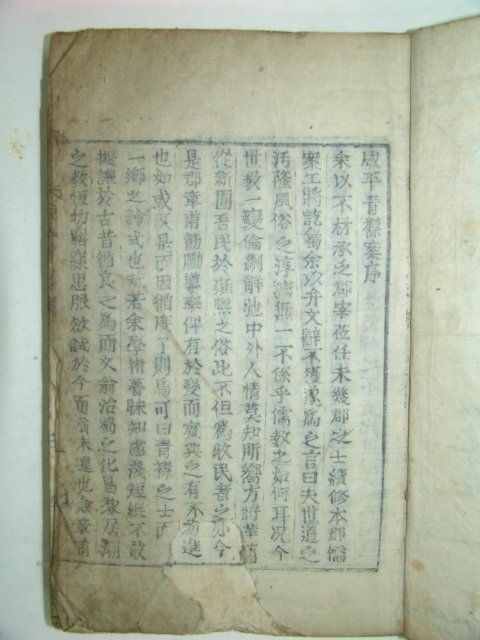 咸平青襟案序
余以不材承乏郡宰莅任未幾郡之士續修本郡儒
案工將訖獨余以弁文辭不獲遂爲之言曰夫世道之
汚隆風俗之淳漓無一不係乎儒教之如何耳况今
世教一變倫綱解弛中外人情莫知所嚮方將革舊
從新囿吾民於蕩熙之俗此不但爲牧民者之亦今
是郡章甫飭勵導率俾有於變而實與之有不
也如或反是而因循度了則焉可曰青襟之士而
一鄕之矜式也哉若余學術蓍昧知慮淺短縱不敢
擬議於古昔循良之爲而文翁治蜀之化昌黎居潮
之教恒切寤寐思服欲試於今而有未遑也